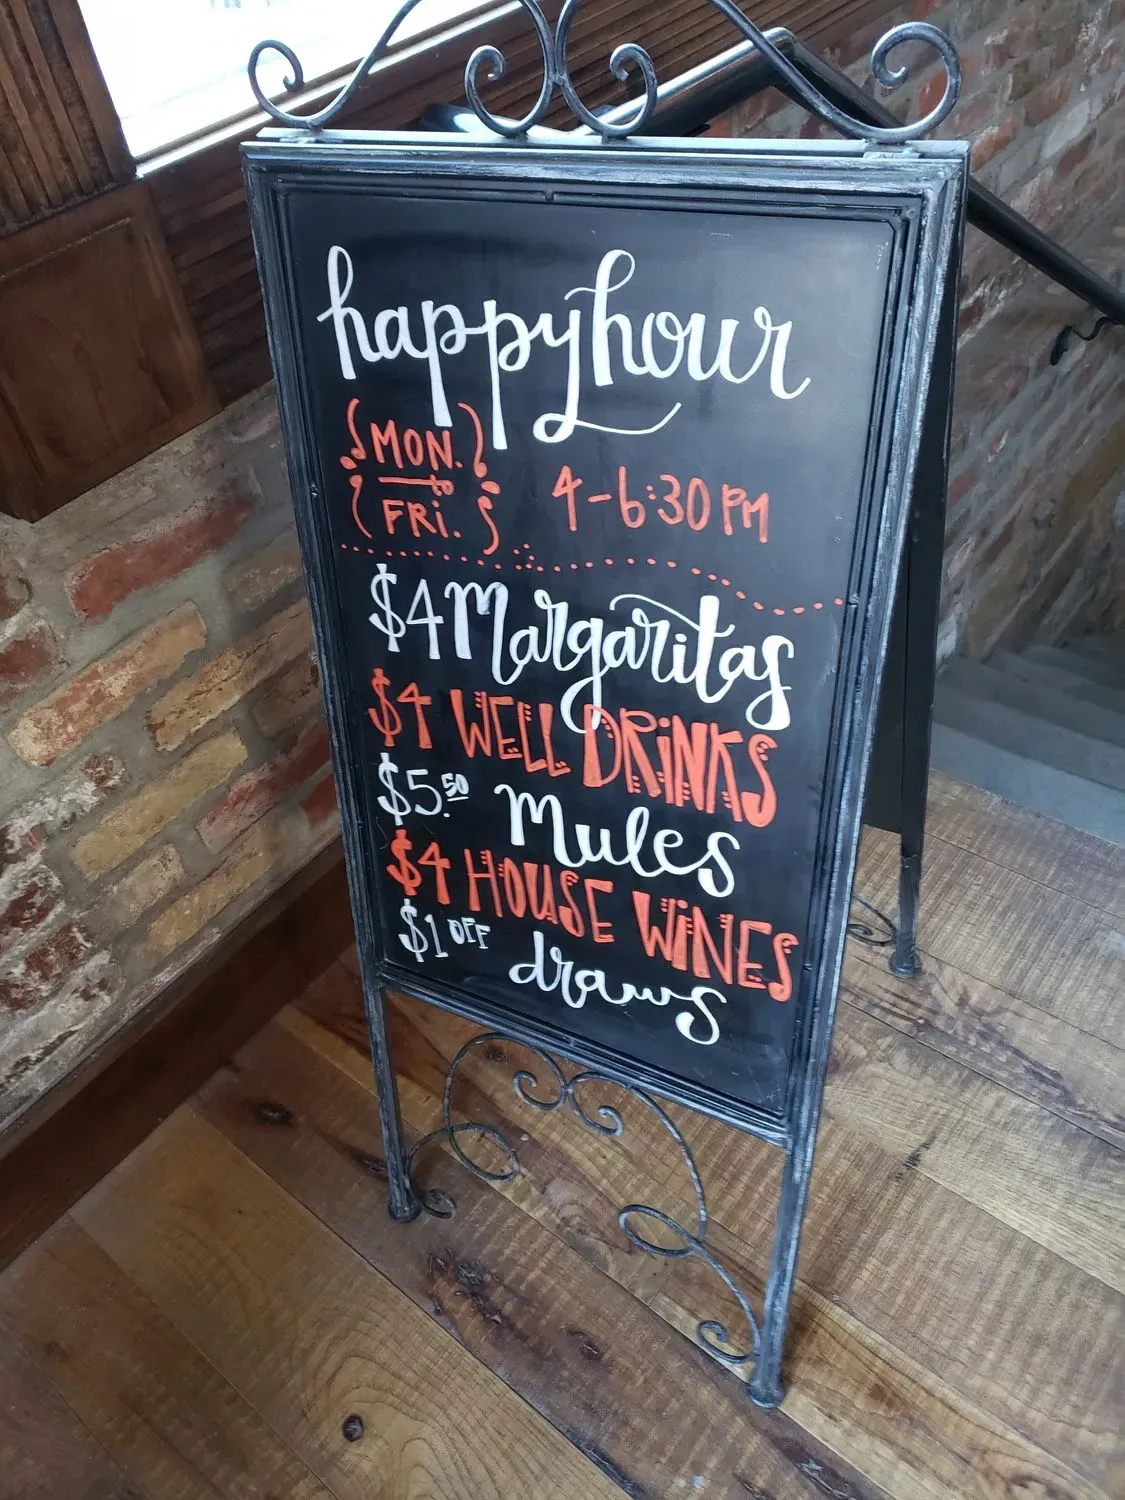 happy hour
MON. to FRi. 4-6:30 PM
$4 Margaritas
$4 WELL DRiNKS
$5.50 Mules
$4 HOUSE WiNES
$1 OFF draws